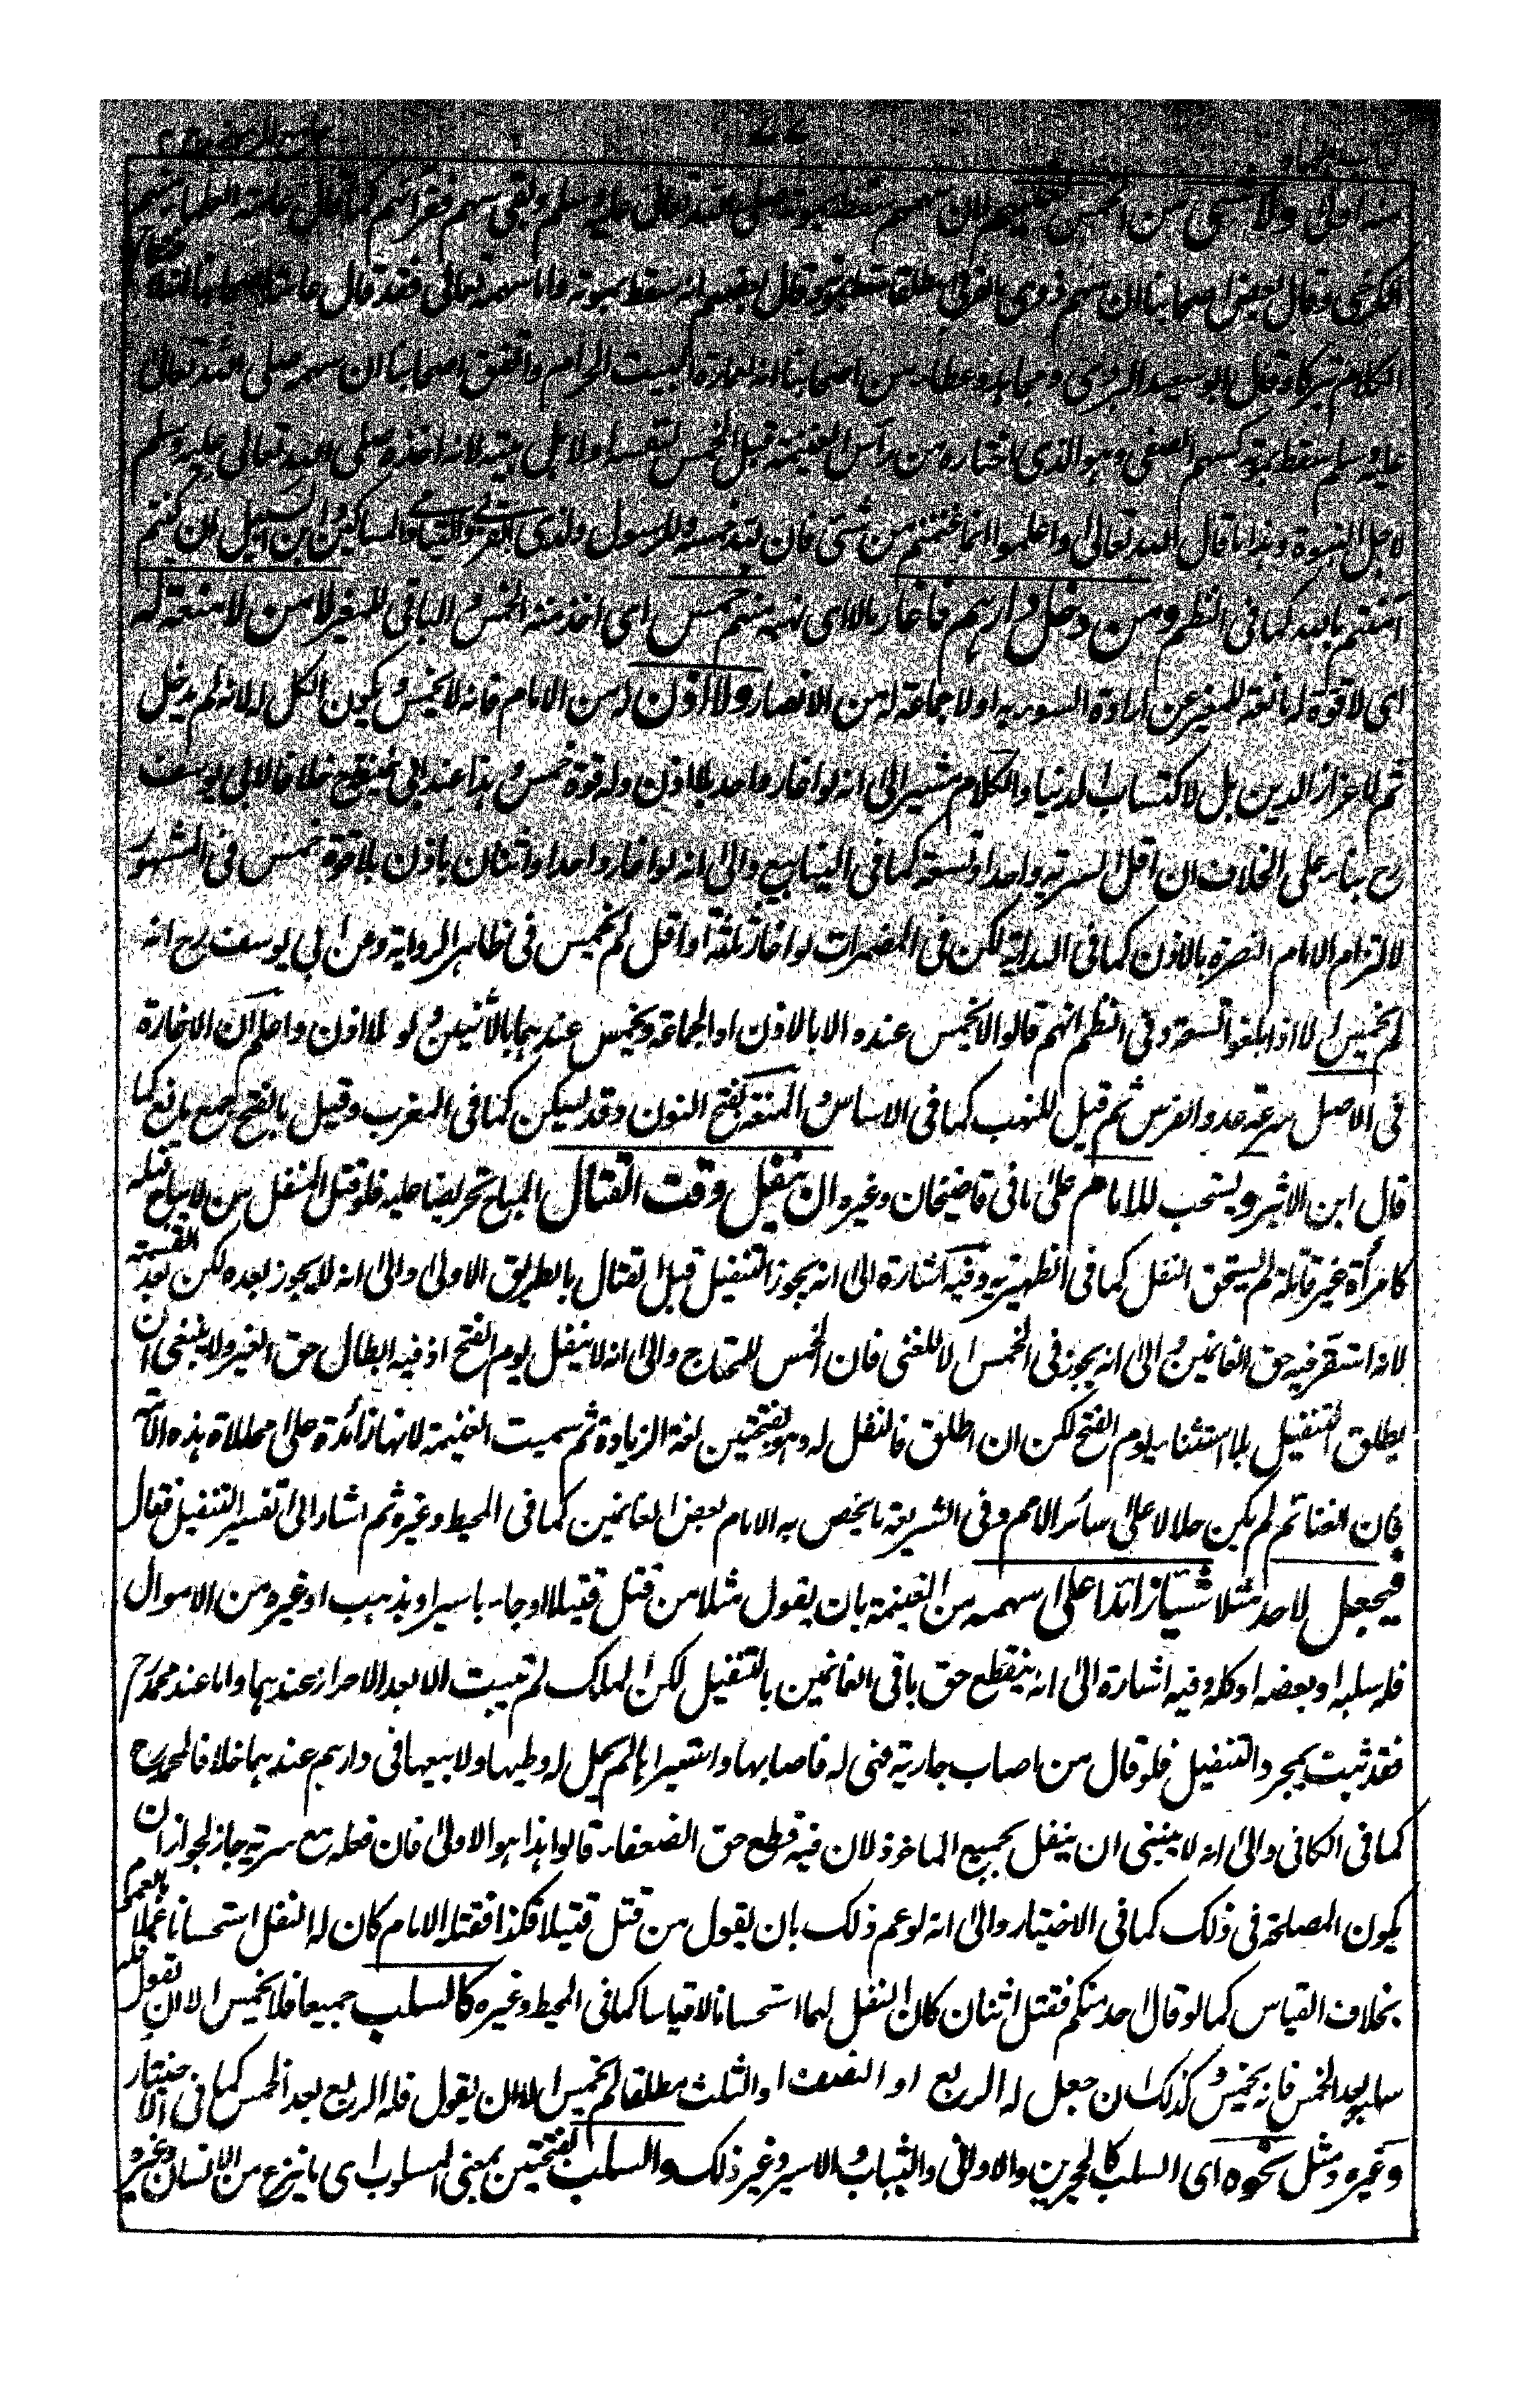 منه اولى ولا شئ من الخمس لغنيهم لان سهمهم سقط بموته صلى الله تعالى عليه وسلم وبقى سهم فقرائهم كما قال
الكرخى وقال بعض اصحابنا ان سهم ذوى القربى مطلقا سقط بموته وقال بعضهم انه سقط بموته واما سهمه تعالى فقد قال عامة اصحابنا انه
الكلام تبركا وقال ابو سعيد البردعى ومجاهد وعطاء من اصحابنا انه لعمارة البيت الحرام واتفق اصحابنا ان سهمه صلى الله تعالى
عليه وسلم سقط بموته كسهم الصفى وهو الذى اختاره من رأس الغنيمة قبل الخمس لنفسه او لاهل بيته لانه اخذه صلى الله تعالى عليه وسلم
لاجل النبوة وهذا ما قال الله تعالى واعلموا انما غنمتم من شئ فان لله خمسه وللرسول ولذى القربى واليتامى والمساكين وابن السبيل ان كنتم
آمنتم بالله كما فى النظم ومن دخل دارهم فاغار مالا اى نهبه منهم خمس اى اخذ منه الخمس والباقى للمغير لا من لا منعة له
اى لا قوة له مانعة للمغير عن ارادة السوء به او لا جماعة له من الانصار ولا اذن له من الامام فانه لا يخمس ويكون الكل له لانه لم يدخل
ثم لاعزاز الدين بل لاكتساب الدنيا والكلام مشير الى انه لو اغار واحد بلا اذن وله قوة خمس وهذا عند ابى حنيفة رح خلافا لابى يوسف
رح بناء على الخلاف ان اقل السرية واحد او تسعة كما فى الينابيع والى انه لو اغار واحد او اثنان باذن بلا قوة خمس فى المشهور
لالتزام الامام النصرة بالاذن كما فى الهداية لكن فى المضمرات لو اغار ثلثة او اقل لم يخمس فى ظاهر الرواية وعن ابى يوسف رح انه
لم يخمس الا اذا بلغوا تسعة وفى النظم انهم قالوا لا يخمس عنده الا بالاذن او الجماعة ويخمس عندهما بالاثنين ولو بلا اذن واعلم ان الاغارة
فى الاصل سرعة عدو الفرس ثم قيل للنهب كما فى الاساس والمنعة بفتح النون وقد يسكن كما فى المغرب وقيل بالفتح جمع مانع كما
قال ابن الاثير ويستحب للامام على ما فى قاضيخان وغيره ان ينفل وقت القتال المباح تحريضا عليه فلو قتل المنفل من لا يباح قتله
كامرأة غير قاتلة لم يستحق النفل كما فى الظهيرية وفيه اشارة الى انه يجوز التنفيل قبل القتال بالطريق الاولى والى انه لا يجوز بعده لكن بعد القسمة
لانه استقر فيه حق الغانمين والى انه يجوز فى الخمس لا للغنى فان الخمس للمحتاج والى انه لا ينفل يوم الفتح اذ فيه ابطال حق الغير ولا ينبغى ان
يطلق التنفيل بلا استثناء يوم الفتح لكن ان اطلق فالنفل له وهو بفتحتين لغة الزيادة ثم سميت الغنيمة لانها زائدة على محللاة هذه الامة
فان الغنائم لم يكن حلالا على سائر الامم وفى الشريعة ما يخص به الامام بعض الغانمين كما فى المحيط وغيره ثم اشار الى تفسير التنفيل فقال
فيجعل لاحد مثلا شيئا زائدا على سهمه من الغنيمة بان يقول مثلا من قتل قتيلا او جاء باسير او بذهب او غيره من الاموال
فله سلبه او بعضه او كله وفيه اشارة الى انه ينقطع حق باقى الغانمين بالتنفيل لكن الملك لم يثبت الا بعد الاحراز عندهما واما عند محمد رح
فقد ثبت بمجرد التنفيل فلو قال من اصاب جارية فهى له فاصابها واستبرأها لم يحل له وطيها ولا بيعها فى دارهم عندهما خلافا لمحمد رح
كما فى الكافى والى انه لا ينبغى ان ينفل بجميع الماخوذ لان فيه قطع حق الضعفاء قالوا هذا هو الاولى فان فعله مع سرية جاز لجواز ان
يكون المصلحة فى ذلك كما فى الاختيار والى انه لو عم ذلك بان يقول من قتل قتيلا فكذا فقتله الامام كان له النفل استحسانا عملا بالعموم
بخلاف القياس كما لو قال احد منكم فقتل اثنان كان النفل لهما استحسانا لا قياسا كما فى المحيط وغيره كالسلب جميعا فلا يخمس الا ان يقول فله
سلبه بعد الخمس فانه يخمس وكذلك ان جعل له الربع او النصف او الثلث مطلقا لم يخمس الا ان يقول فله الربع بعد الخمس كما فى الاختيار
وغيره ومثل نحوه اى السلب كالحجرين والاوانى والثياب والاسير وغير ذلك والسلب بفتحتين بمعنى المسلوب اى ما ينزع من الانسان وغيره